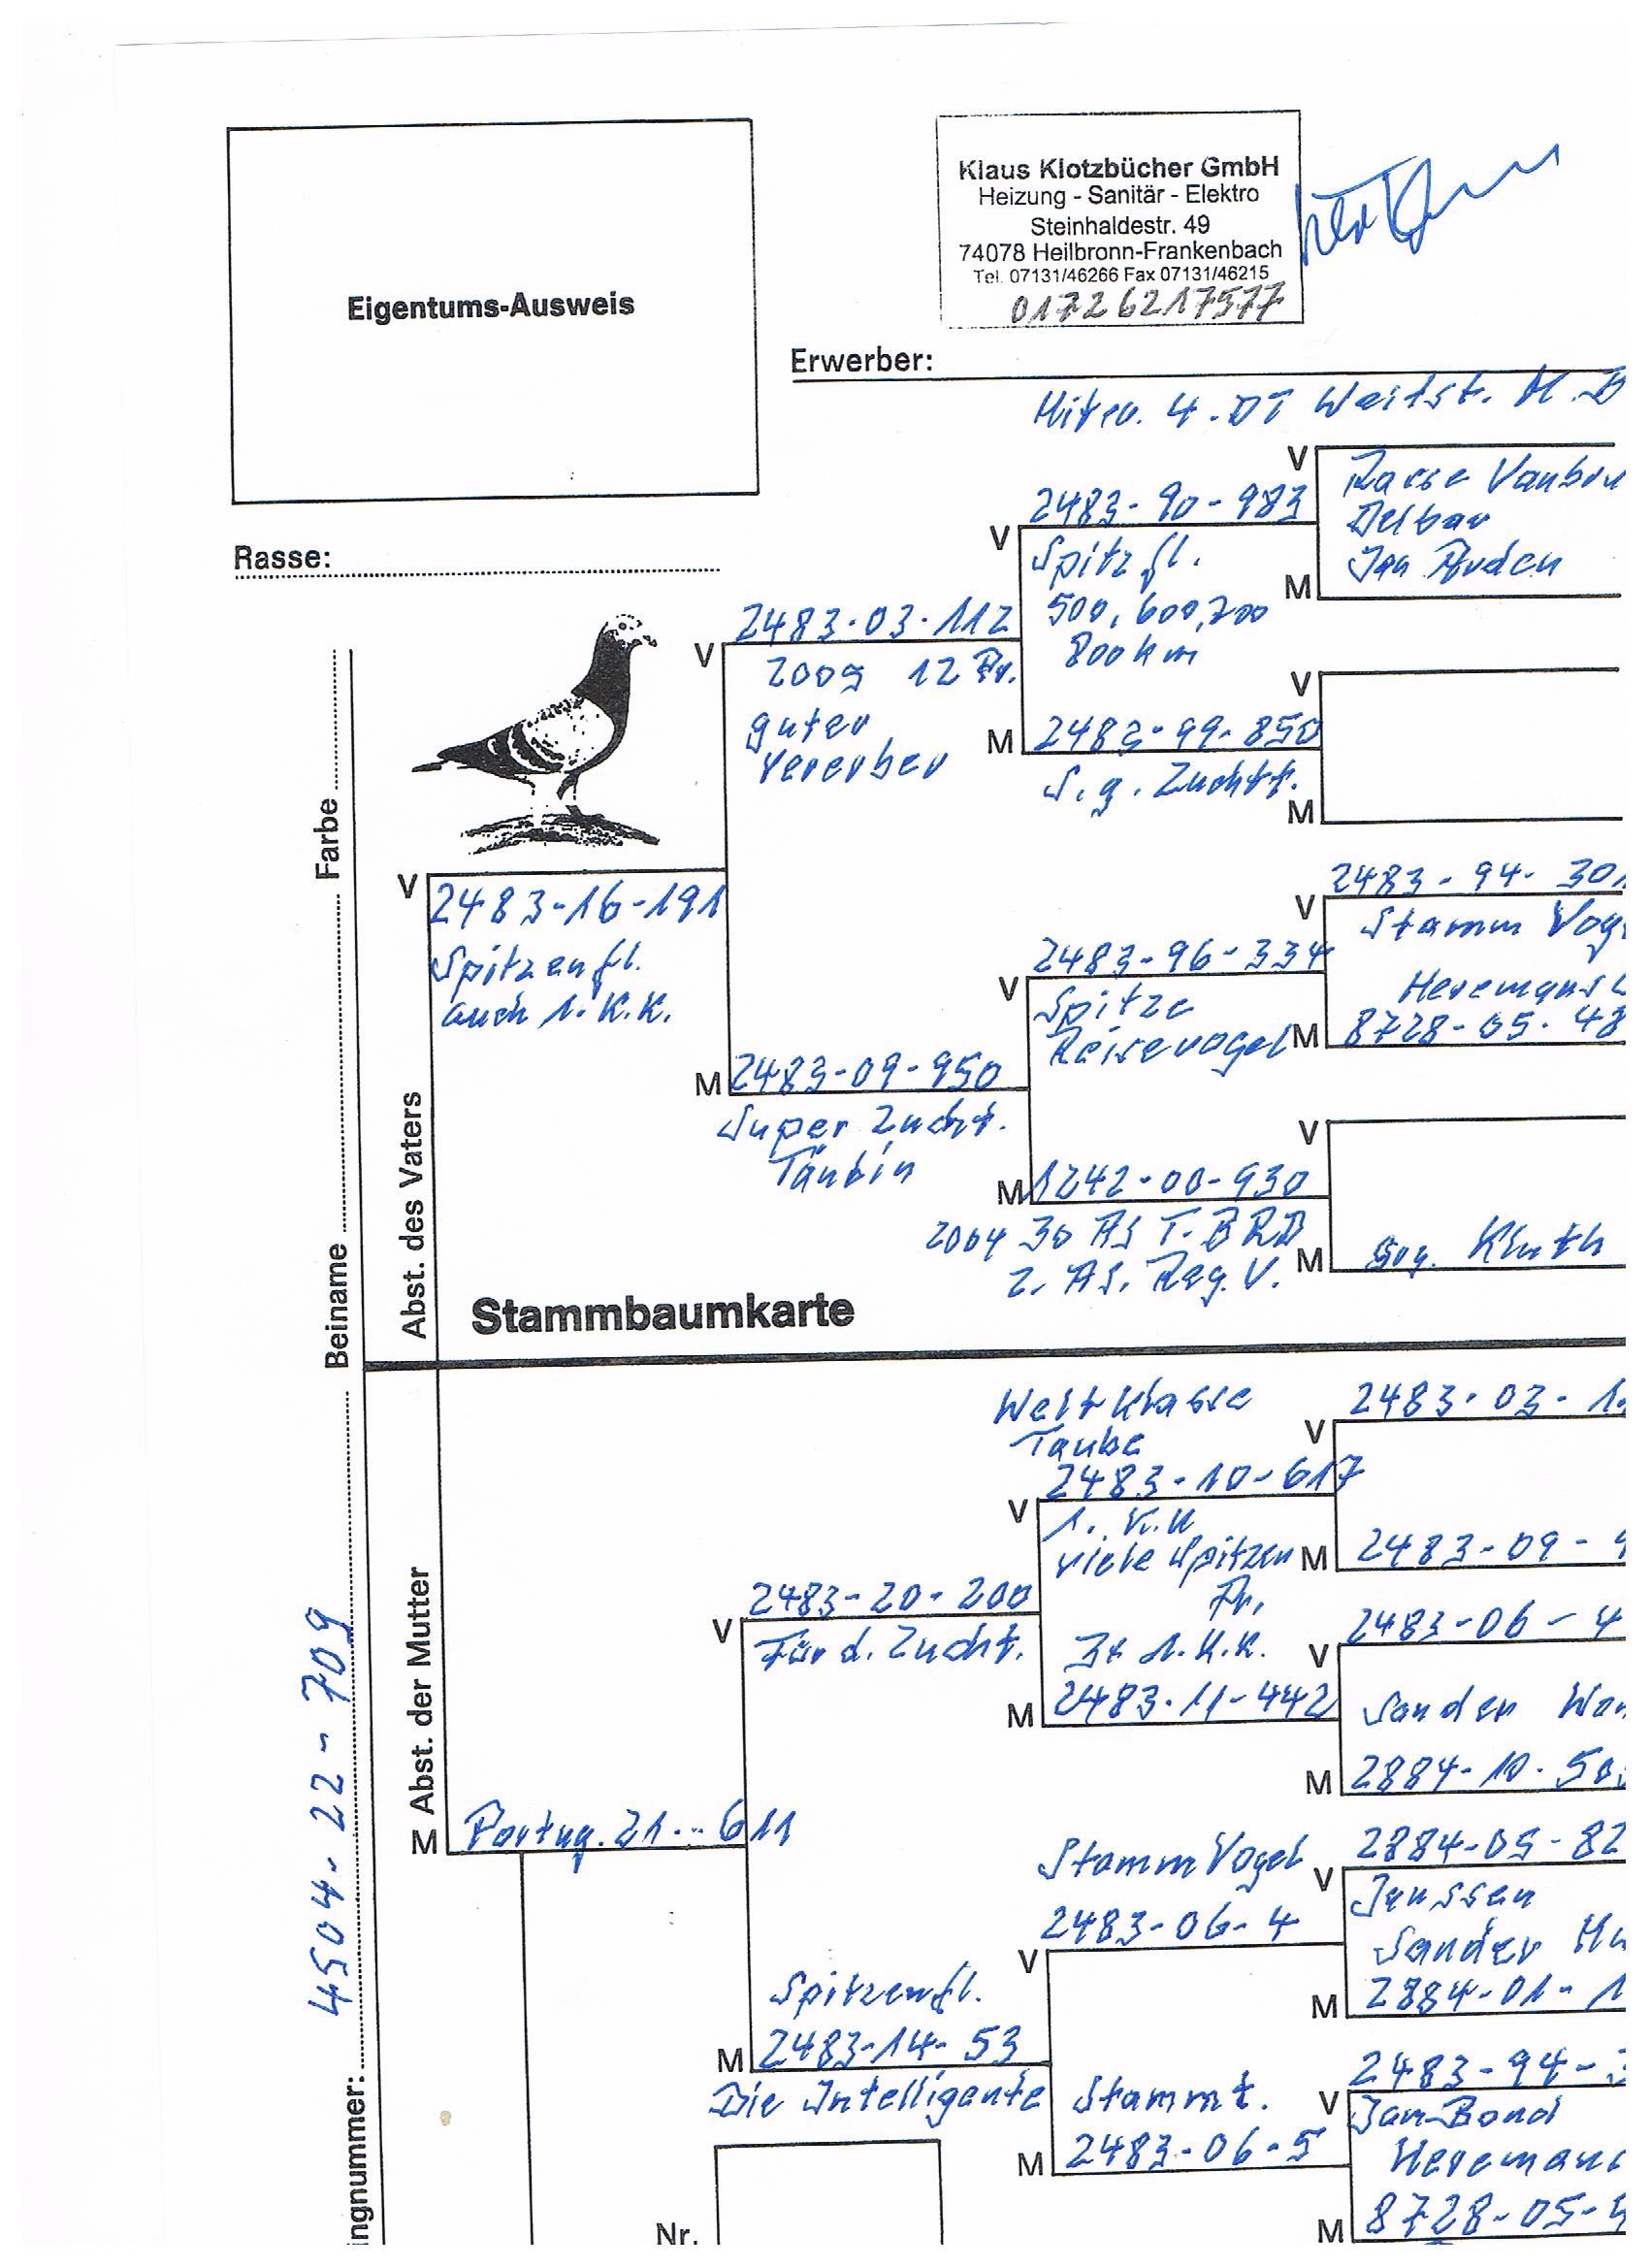 Klaus Klotzbücher GmbH
Heizung - Sanitär - Elektro
Steinhaldestr. 49
74078 Heilbronn-Frankenbach
Tel. 07131/46266 Fax 07131/46215
0172 6217577
Eigentums-Ausweis
Erwerber:
4. DT Weitst. M. D
Rasse:
V
Rasse
Delbar
Jan Arden
M
2483-90-983
V
Spitz fl.
500, 600, 700
800 km
2483-03-112
V
2009 12 Pr.
guter
Vererber
V
M 2483-99-850
S. g. Zuchtt.
M
Farbe
V
2483-16-191
Spitzenfl.
auch 1. K.K.
2483-94-301
V
Stamm Vog
Heremans
M 8728-05-48
2483-96-334
V
Spitze
Reisevogel
M 2483-09-950
Super Zucht.
Täubin
V
M 1242-00-930
2004 30 AS T. BRD
2. AS. Reg. V.
M Kluth
Beiname
Abst. des Vaters
Stammbaumkarte
Weltklasse
Taube
2483-03-1
V
2483-10-617
V
1. K.K
viele Spitzen
Pr.
3x 1. K.K.
M 2483-09-
2483-20-200
V
Für d. Zucht.
2483-06-4
V
M 2483-11-442
Sander
M 2884-10-50
Abst. der Mutter
M
Portug. 21... 611
4504-22-709
ingnummer:
Stamm Vogel
2884-05-82
V
Janssen
Sander
M 2884-01-1
2483-06-4
V
Spitzenfl.
M 2483-14-53
Die Intelligente
Stammt.
2483-94-3
V
Jan-Bond
Heremans
M 2483-06-5
M 8728-05-4
Nr.